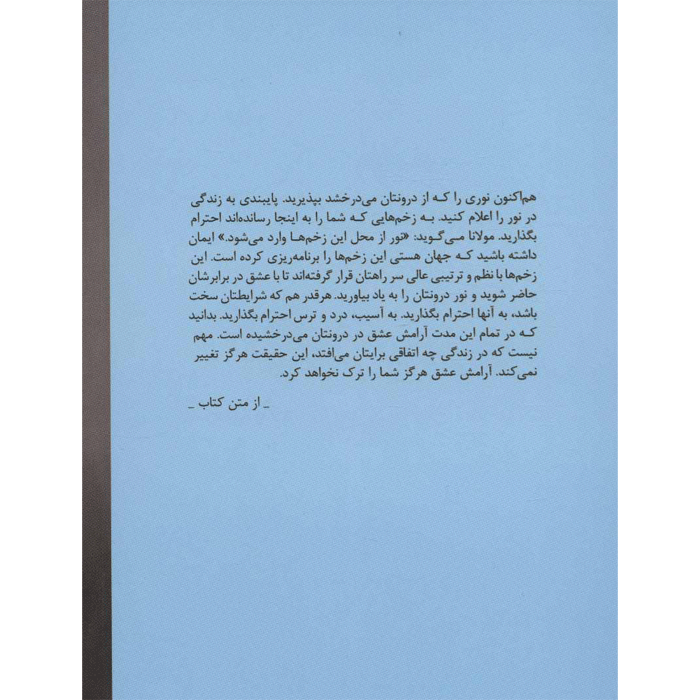 هم‌اکنون نوری را که از درونتان می‌درخشد بپذیرید. پایبندی به زندگی
در نور را اعلام کنید. به زخم‌هایی که شما را به اینجا رسانده‌اند احترام
بگذارید. مولانا می‌گوید: «نور از محل این زخم‌ها وارد می‌شود.» ایمان
داشته باشید که جهان هستی این زخم‌ها را برنامه‌ریزی کرده است. این
زخم‌ها با نظم و ترتیبی عالی سر راهتان قرار گرفته‌اند تا با عشق در برابرشان
حاضر شوید و نور درونتان را به یاد بیاورید. هرقدر هم که شرایطتان سخت
باشد، به آنها احترام بگذارید. به آسیب، درد و ترس احترام بگذارید. بدانید
که در تمام این مدت آرامش عشق در درونتان می‌درخشیده است. مهم
نیست که در زندگی چه اتفاقی برایتان می‌افتد، این حقیقت هرگز تغییر
نمی‌کند. آرامش عشق هرگز شما را ترک نخواهد کرد.
_ از متن کتاب _